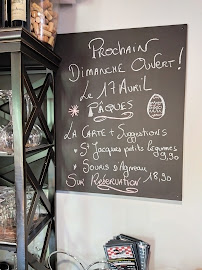 Prochain
Dimanche Ouvert!
Le 17 Avril
Pâques
La Carte + Suggestions
* St Jacques petits légumes
9,90
* Souris d'Agneau
18,90
Sur Réservation